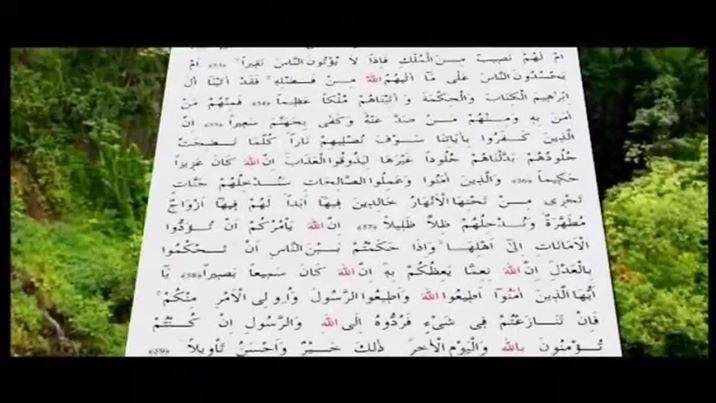 اَمْ لَهُمْ نَصِيبٌ مِنَ الْمُلْكِ فَاِذاً لَا يُؤْتُونَ النَّاسَ نَقِيراً ﴿53﴾ اَمْ
يَحْسُدُونَ النَّاسَ عَلٰى مَٓا اٰتٰيهُمُ اللّٰهُ مِنْ فَضْلِهِ فَقَدْ اٰتَيْنَٓا اٰلَ
اِبْرٰهِيمَ الْكِتَابَ وَالْحِكْمَةَ وَاٰتَيْنَاهُمْ مُلْكاً عَظِيماً ﴿54﴾ فَمِنْهُمْ مَنْ
اٰمَنَ بِهِ وَمِنْهُمْ مَنْ صَدَّ عَنْهُ وَكَفٰى بِجَهَنَّمَ سَعِيراً ﴿55﴾ اِنَّ
الَّذِينَ كَفَرُوا بِاٰيَاتِنَا سَوْفَ نُصْلِيهِمْ نَاراً كُلَّمَا نَضِجَتْ
جُلُودُهُمْ بَدَّلْنَاهُمْ جُلُوداً غَيْرَهَا لِيَذُوقُوا الْعَذَابَ اِنَّ اللّٰهَ كَانَ عَزِيزاً
حَكِيماً ﴿56﴾ وَالَّذِينَ اٰمَنُوا وَعَمِلُوا الصَّالِحَاتِ سَنُدْخِلُهُمْ جَنَّاتٍ
تَجْرِى مِنْ تَحْتِهَا الْاَنْهَارُ خَالِدِينَ فِيهَٓا اَبَداً لَهُمْ فِيهَٓا اَزْوَاجٌ
مُطَهَّرَةٌ وَنُدْخِلُهُمْ ظِلاًّ ظَلِيلاً ﴿57﴾ اِنَّ اللّٰهَ يَأْمُرُكُمْ اَنْ تُؤَدُّوا
الْاَمَانَاتِ اِلٰٓى اَهْلِهَا وَاِذَا حَكَمْتُمْ بَيْنَ النَّاسِ اَنْ تَحْكُمُوا
بِالْعَدْلِ اِنَّ اللّٰهَ نِعِمَّا يَعِظُكُمْ بِهِ اِنَّ اللّٰهَ كَانَ سَمِيعاً بَصِيراً ﴿58﴾ يَٓا
اَيُّهَا الَّذِينَ اٰمَنُٓوا اَطِيعُوا اللّٰهَ وَاَطِيعُوا الرَّسُولَ وَاُولِى الْاَمْرِ مِنْكُمْ
فَاِنْ تَنَازَعْتُمْ فِى شَىْءٍ فَرُدُّوهُ اِلَى اللّٰهِ وَالرَّسُولِ اِنْ كُنْتُمْ
تُؤْمِنُونَ بِاللّٰهِ وَالْيَوْمِ الْاٰخِرِ ذٰلِكَ خَيْرٌ وَاَحْسَنُ تَأْوِيلاً ﴿59﴾